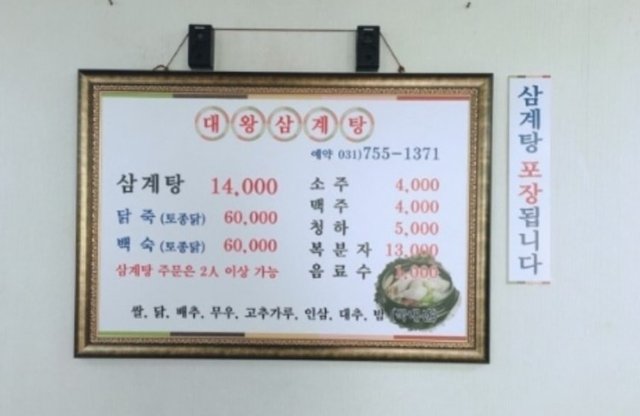 대왕삼계탕
예약 031)755-1371
삼계탕 14,000
닭죽 (토종닭) 60,000
백숙 (토종닭) 60,000
삼계탕 주문은 2人 이상 가능
소주 4,000
맥주 4,000
청하 5,000
복분자 13,000
음료수 1,000
쌀, 닭, 배추, 무우, 고추가루, 인삼, 대추, 밤
삼계탕 포장됩니다